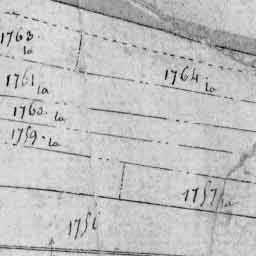 1763. la
1764 la
1761 la
1760. la
1759. la
1757 la
175